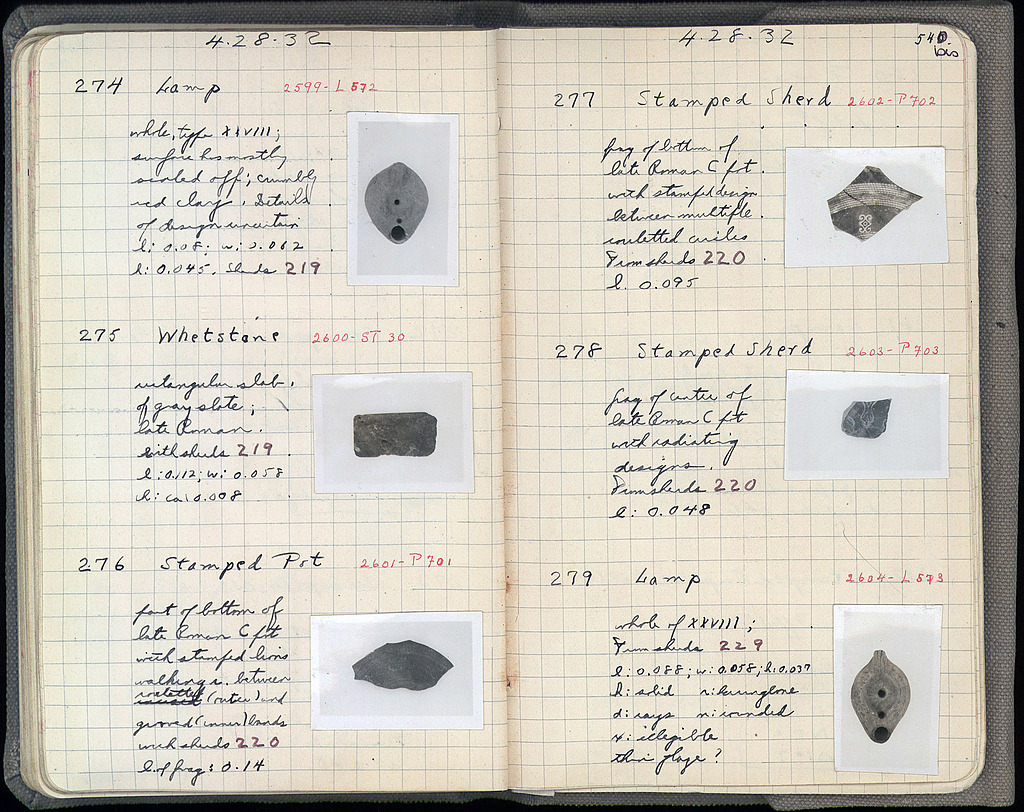 4.28.32
274 Lamp 2599-L 572
whole, type XXVIII;
surface has mostly
scaled off; crumbly
red clay. Details
of design uncertain
l: 0.08; w: 0.062
h: 0.045. Sherds 219
275 Whetstone 2600-ST 30
rectangular slab.
of gray slate;
late Roman.
with sherds 219
l: 0.112; w: 0.058
h: ca 0.008
276 Stamped Pot 2601-P701
part of bottom of
late Roman C pot
with stamped lions
walking r. between
rouletted (outer) and
grooved (inner) bands
with sherds 220
l. of frag: 0.14
4.28.32
540 bis
277 Stamped Sherd 2602-P702
frag of bottom of
late Roman C pot.
with stamped design
between multiple
rouletted circles
From sherds 220
l. 0.095
278 Stamped Sherd 2603-P703
frag of center of
late Roman C pot
with radiating
designs.
From sherds 220
l: 0.048
279 Lamp 2604-L 573
whole of XXVIII;
From sherds 229
l: 0.088; w: 0.058; h: 0.037
h: solid
d: rays n: rounded
x: illegible
thin glaze?